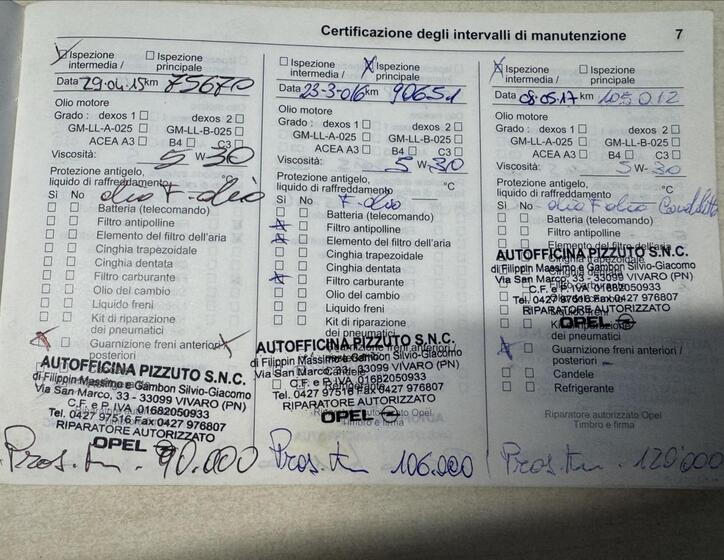 Certificazione degli intervalli di manutenzione 7
Ispezione intermedia / Ispezione principale
Data 29.04.15 km 75670
Olio motore
Grado : dexos 1 dexos 2
GM-LL-A-025 GM-LL-B-025
ACEA A3 B4 C3
Viscosità: 5 W-30
Protezione antigelo,
liquido di raffreddamento °C
olio F. olio
Sì No
Batteria (telecomando)
Filtro antipolline
Elemento del filtro dell'aria
Cinghia trapezoidale
Cinghia dentata
Filtro carburante
Olio del cambio
Liquido freni
Kit di riparazione
dei pneumatici
Guarnizione freni anteriori /
posteriori
AUTOFFICINA PIZZUTO S.N.C.
di Filippin Massimo e Gambon Silvio-Giacomo
Via San Marco, 33 - 33099 VIVARO (PN)
C.F. e P. IVA 01682050933
Tel. 0427 97516 Fax 0427 976807
RIPARATORE AUTORIZZATO
OPEL
Pros. Km 90.000
Ispezione intermedia / Ispezione principale
Data 23-3-016 km 90651
Olio motore
Grado : dexos 1 dexos 2
GM-LL-A-025 GM-LL-B-025
ACEA A3 B4 C3
Viscosità: 5 W-30
Protezione antigelo,
liquido di raffreddamento °C
F. olio
Sì No
Batteria (telecomando)
Filtro antipolline
Elemento del filtro dell'aria
Cinghia trapezoidale
Cinghia dentata
Filtro carburante
Olio del cambio
Liquido freni
Kit di riparazione
dei pneumatici
Guarnizione freni anteriori /
AUTOFFICINA PIZZUTO S.N.C.
di Filippin Massimo e Gambon Silvio-Giacomo
Via San Marco, 33 - 33099 VIVARO (PN)
C.F. e P. IVA 01682050933
Tel. 0427 97516 Fax 0427 976807
RIPARATORE AUTORIZZATO
Riparatore autorizzato Opel
OPEL
Timbro e firma
Pros. Km 106.000
Ispezione intermedia / Ispezione principale
Data 08.05.17 km 105012
Olio motore
Grado : dexos 1 dexos 2
GM-LL-A-025 GM-LL-B-025
ACEA A3 B4 C3
Viscosità: 5 W-30
Protezione antigelo,
liquido di raffreddamento °C
Sì No olio F olio
Batteria (telecomando)
Filtro antipolline
Elemento del filtro dell'aria
AUTOFFICINA PIZZUTO S.N.C.
Cinghia trapezoidale
di Filippin Massimo e Gambon Silvio-Giacomo
Via San Marco, 33 - 33099 VIVARO (PN)
C.F. e P. IVA 01682050933
Tel. 0427 97516 Fax 0427 976807
RIPARATORE AUTORIZZATO
OPEL
dei pneumatici
Guarnizione freni anteriori /
posteriori
Candele
Refrigerante
Riparatore autorizzato Opel
Timbro e firma
Pros. Km 120'000